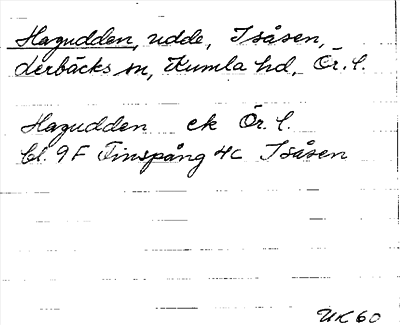 Hagudden, udde, Isåsen,
Lerbäcks sn, Kumla hd, Ör. l.
Hagudden ek Ör. l.
bl. 9F Finspång 4c Isåsen
UK60